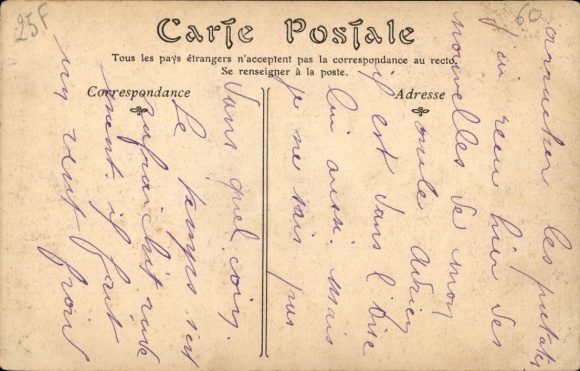 25F
60
Carte Postale
Tous les pays étrangers n'acceptent pas la correspondance au recto.
Se renseigner à la poste.
Correspondance
Adresse
arracher les patates
j'ai reçu hier des
nouvelles de mon
oncle Adrien
il est dans l'Oise
lui aussi. Mais
je ne sais pas
dans quel coin.
Le temps s'est
rafraichit rude
ment. il fait
un vent froid